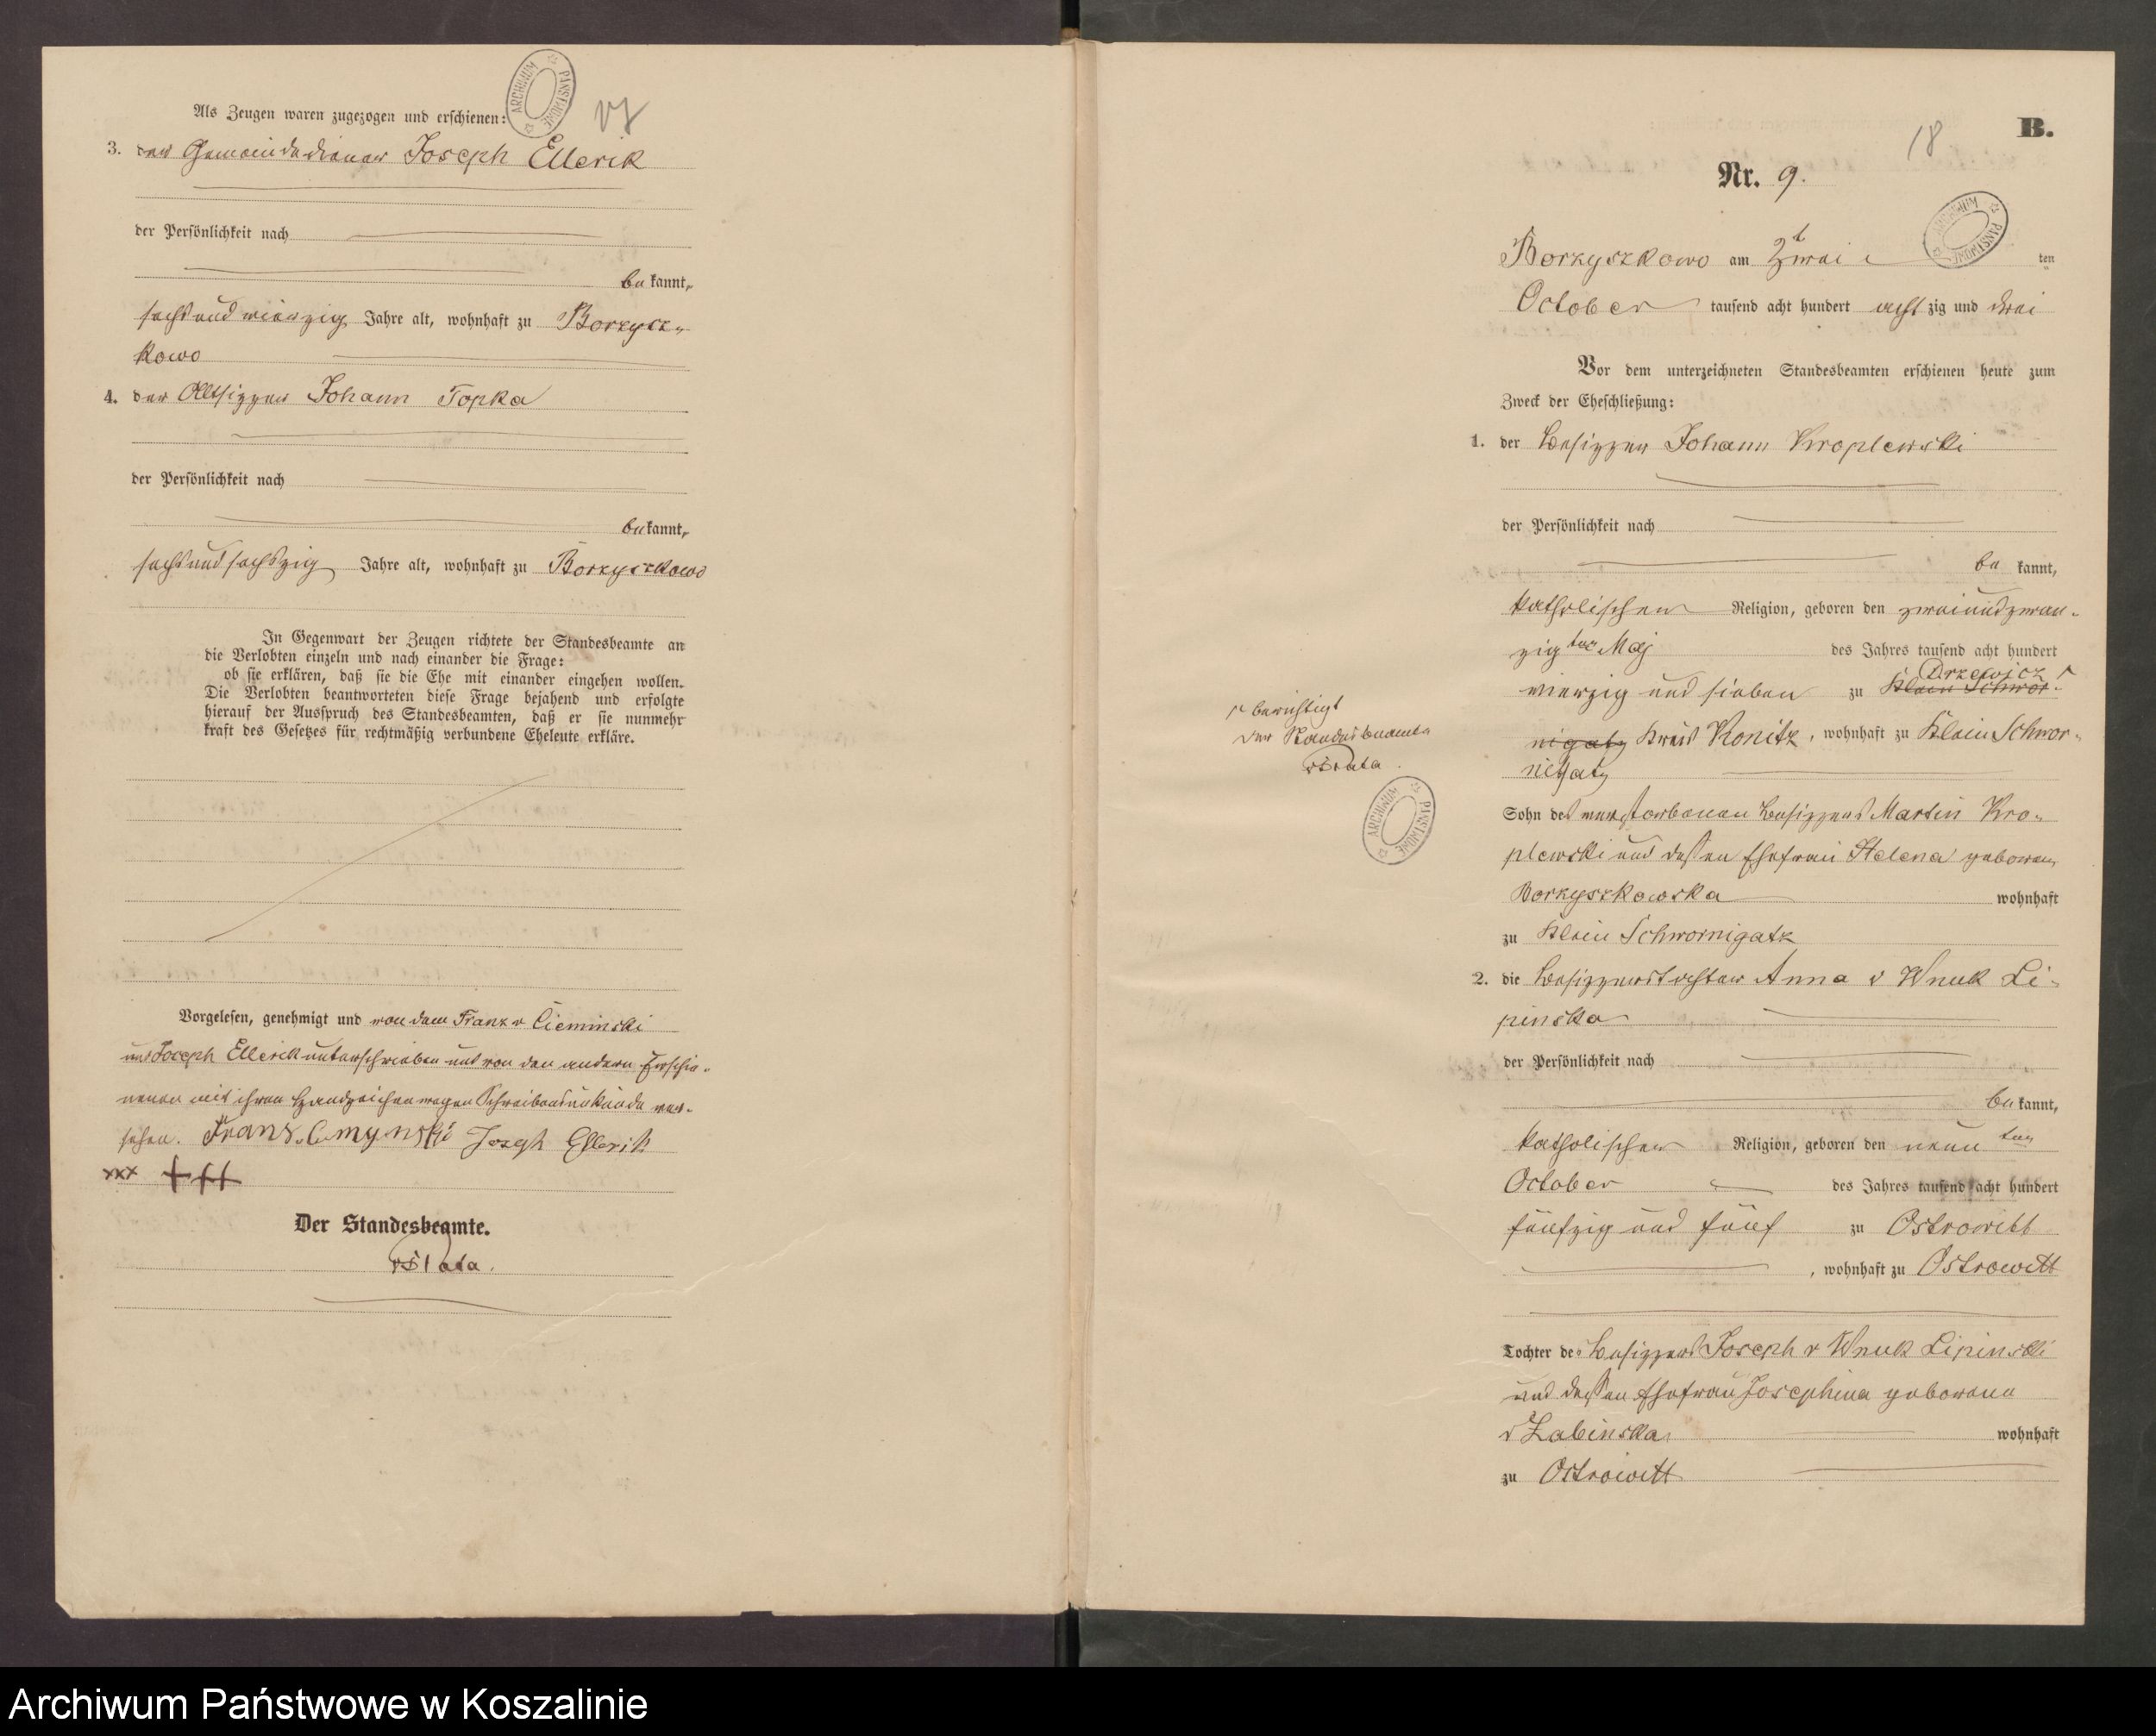 Als Zeugen waren zugezogen und erschienen:
ARCHIWUM PAŃSTWOWE
17
3. der Gemeindediener Joseph Ellerik
der Persönlichkeit nach
be kannt,
sechsundvierzig Jahre alt, wohnhaft zu Borzysz-
kowo
4. der Altsitzer Johann Topka
der Persönlichkeit nach
be kannt,
sechsundsechszig Jahre alt, wohnhaft zu Borzyszkowo
In Gegenwart der Zeugen richtete der Standesbeamte an
die Verlobten einzeln und nach einander die Frage:
ob sie erklären, daß sie die Ehe mit einander eingehen wollen.
Die Verlobten beantworteten diese Frage bejahend und erfolgte
hierauf der Ausspruch des Standesbeamten, daß er sie nunmehr
kraft des Gesetzes für rechtmäßig verbundene Eheleute erkläre.
Vorgelesen, genehmigt und von dem Franz v Cieminski
und Joseph Ellerik unterschrieben und von den andern Erschie-
nenen mit ihren Handzeichen wegen Schreibensunkunde ver-
sehen. Franz Joseph Ellerik
xxx +++
Der Standesbeamte.
B.
18
Nr. 9.
ARCHIWUM PAŃSTWOWE
Borzyszkowo am Zwei ten
October tausend acht hundert acht zig und drei
Vor dem unterzeichneten Standesbeamten erschienen heute zum
Zweck der Eheschließung:
1. der Besitzer Johann Kroplewski
der Persönlichkeit nach
be kannt,
katholischer Religion, geboren den zweiundzwan-
zigten Maj des Jahres tausend acht hundert
Drzewicz
vierzig und sieben zu Klein Schwor-
nigatz Kreis Konitz, wohnhaft zu Klein Schwor-
nigatz
Sohn des verstorbenen Besitzers Martin Kro-
plewski und dessen Ehefrau Helena geboren
Borzyszkowska wohnhaft
zu Klein Schwornigatz
2. die Besitzerstochter Anna v Wnuk Li-
pinska
der Persönlichkeit nach
be kannt,
katholischer Religion, geboren den neun ten
October des Jahres tausend acht hundert
fünfzig und fünf zu Ostrowitt
, wohnhaft zu Ostrowitt
Tochter des Besitzers Joseph v Wnuk Lipinski
und dessen Ehefrau Josephina geborene
v Zabinska wohnhaft
zu Ostrowitt
berichtigt
Der Standesbeamte
ARCHIWUM PAŃSTWOWE
Archiwum Państwowe w Koszalinie